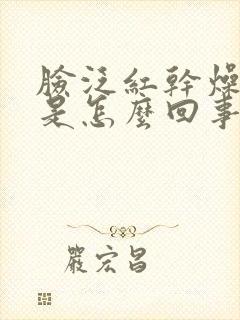 臉泛紅幹燥
是怎麼回事
嚴宏昌